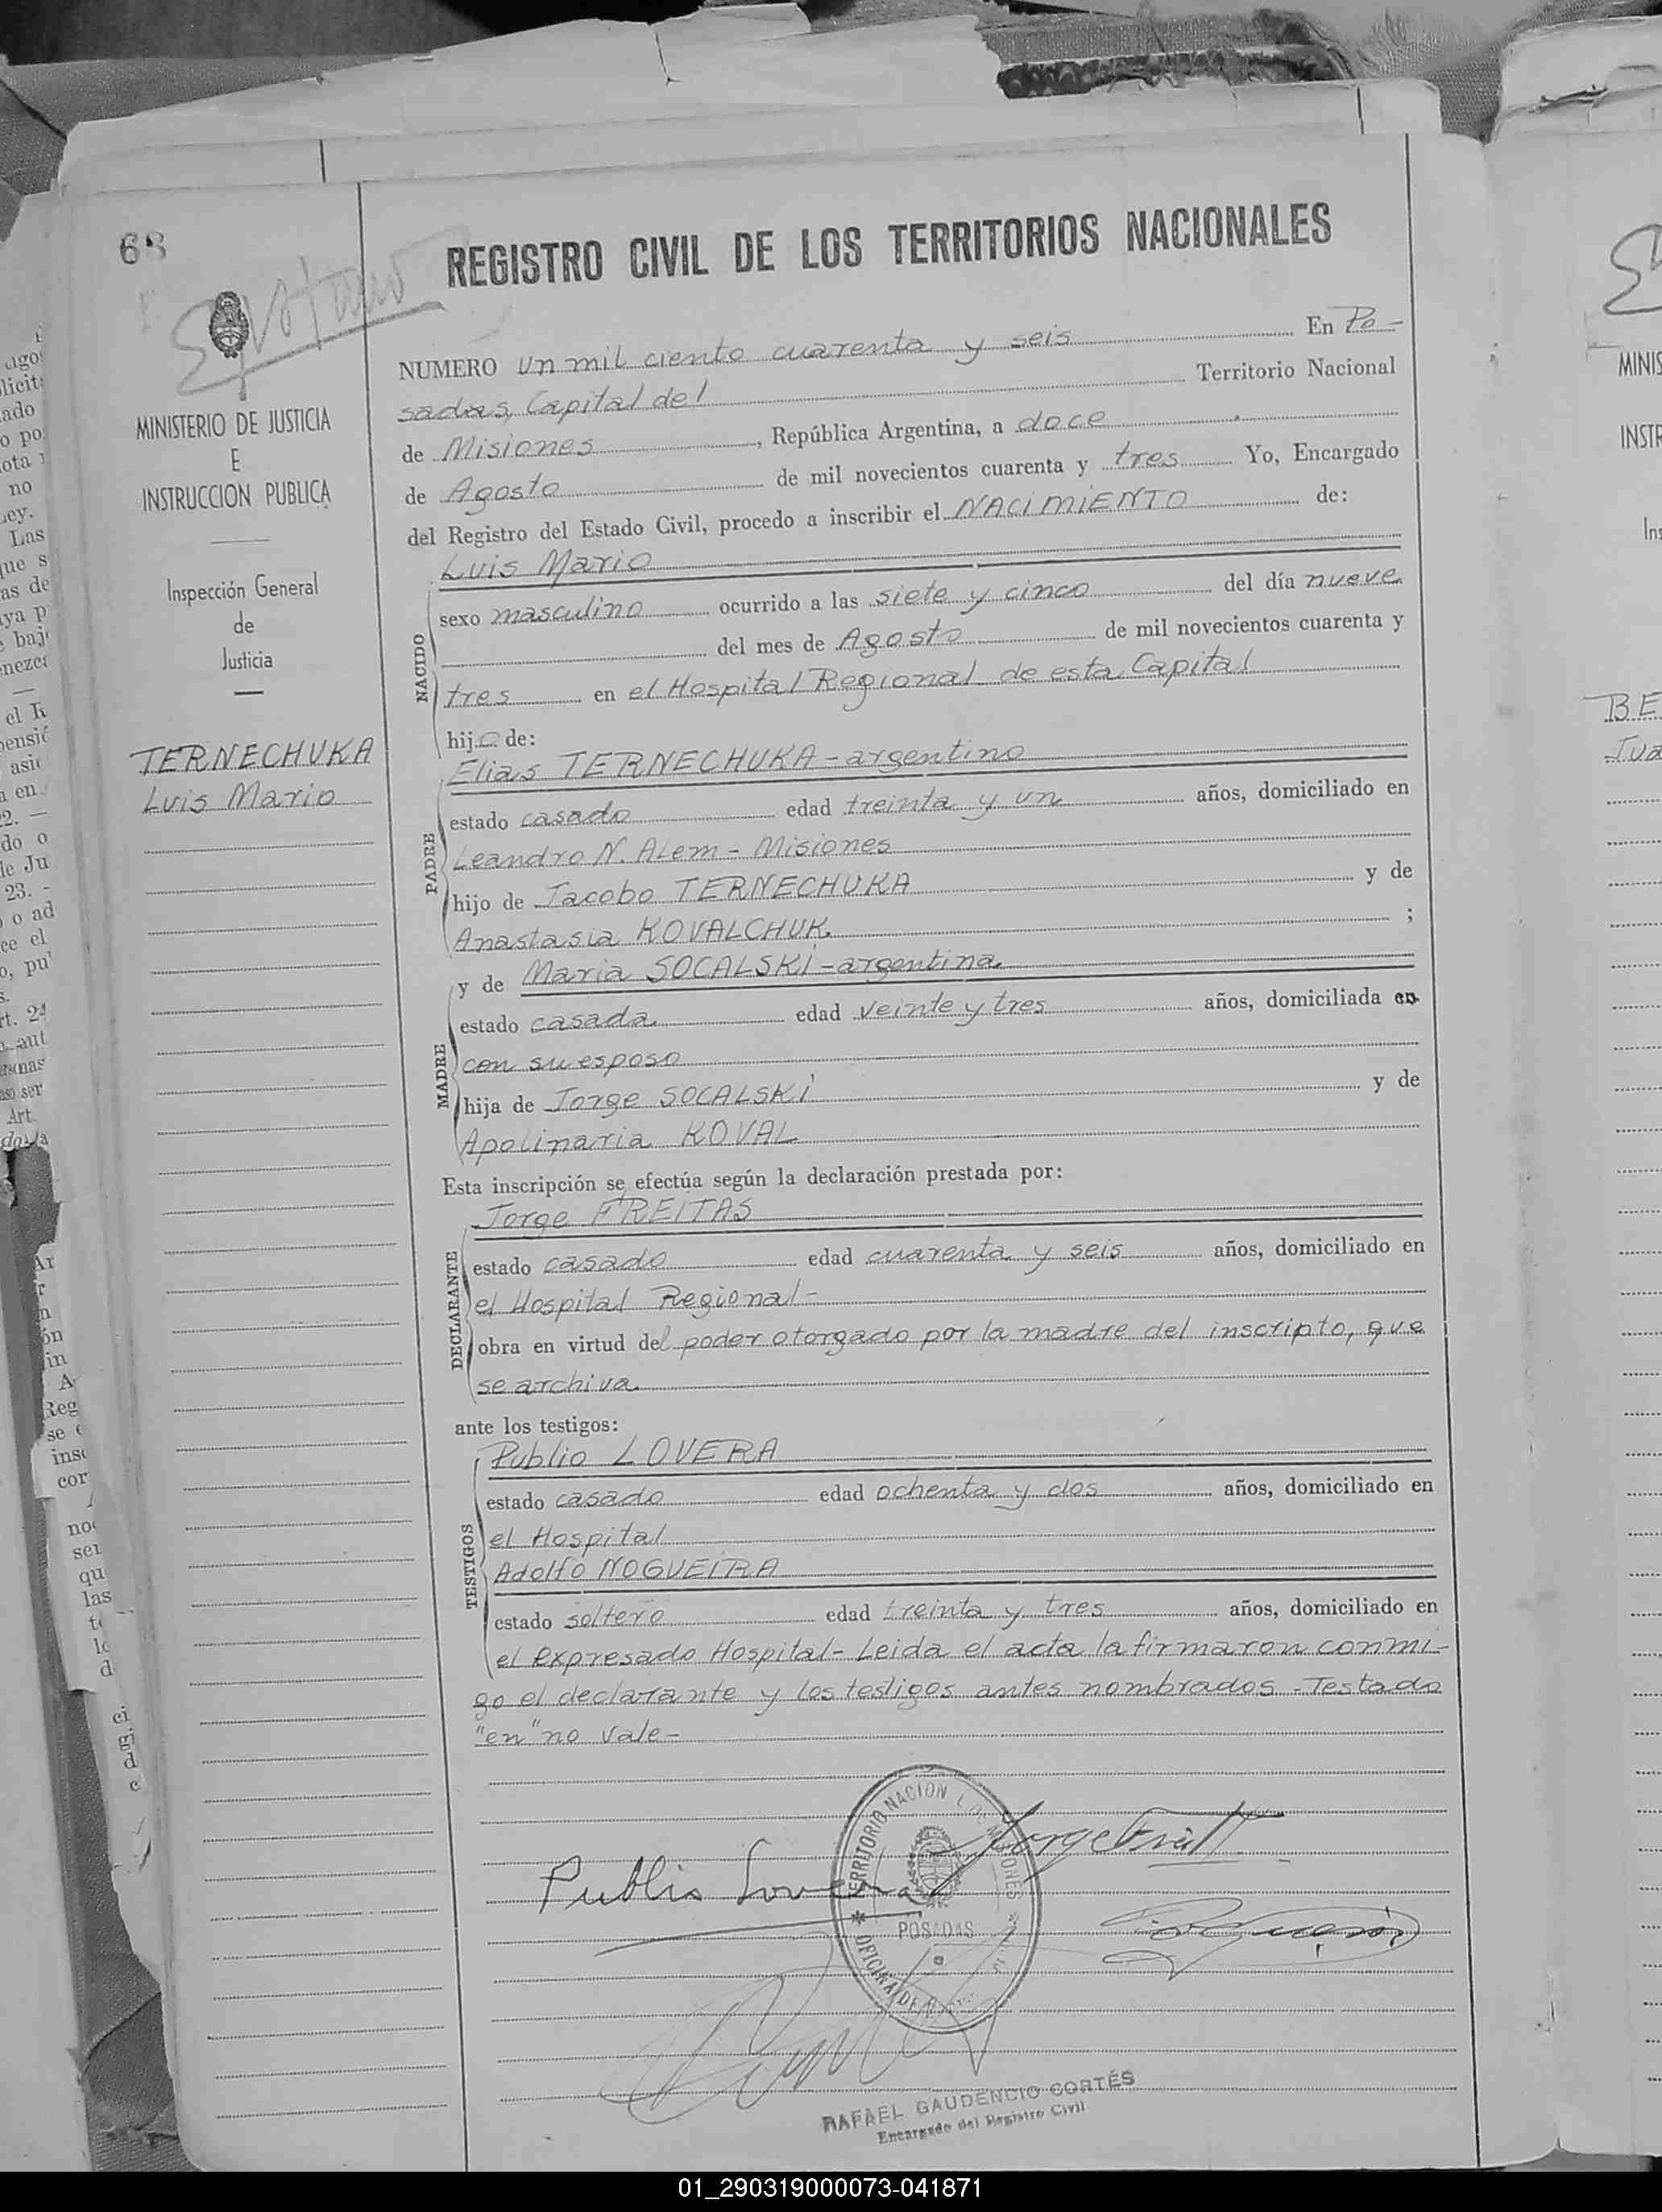 68
REGISTRO CIVIL DE LOS TERRITORIOS NACIONALES
MINISTERIO DE JUSTICIA
E
INSTRUCCION PUBLICA
Inspección General
de
Justicia
TERNECHUKA
Luis Mario
NUMERO un mil ciento cuarenta y seis En Po-
sadas, Capital del Territorio Nacional
de Misiones, República Argentina, a doce
de Agosto de mil novecientos cuarenta y tres Yo, Encargado
del Registro del Estado Civil, procedo a inscribir el NACIMIENTO de:
Luis Mario
NACIDO
sexo masculino ocurrido a las siete y cinco del día nueve
del mes de Agosto de mil novecientos cuarenta y
tres en el Hospital Regional de esta Capital
hijo de:
Elias TERNECHUKA - argentino
PADRE
estado casado edad treinta y un años, domiciliado en
Leandro N. Alem - Misiones
hijo de Jacobo TERNECHUKA y de
Anastasia KOVALCHUK. ;
y de Maria SOCALSKI - argentina.
MADRE
estado casada edad veinte y tres años, domiciliada en
con su esposo
hija de Jorge SOCALSKI y de
Apolinaria KOVAL
Esta inscripción se efectúa según la declaración prestada por:
Jorge FREITAS
DECLARANTE
estado casado edad cuarenta y seis años, domiciliado en
el Hospital Regional-
obra en virtud del poder otorgado por la madre del inscripto, que
se archiva.
ante los testigos:
Publio LOVERA
TESTIGOS
estado casado edad ochenta y dos años, domiciliado en
el Hospital
Adolfo NOGUEIRA
estado soltero edad treinta y tres años, domiciliado en
el expresado Hospital- Leida el acta la firmaron conmi-
go el declarante y los testigos antes nombrados - Testado
"en" no vale-
Publio Lovera
TERRITORIO NACIONAL DE MISIONES
POSADAS
OFICINA DE
RAFAEL GAUDENCIO CORTÉS
Encargado del Registro Civil
01_290319000073-041871